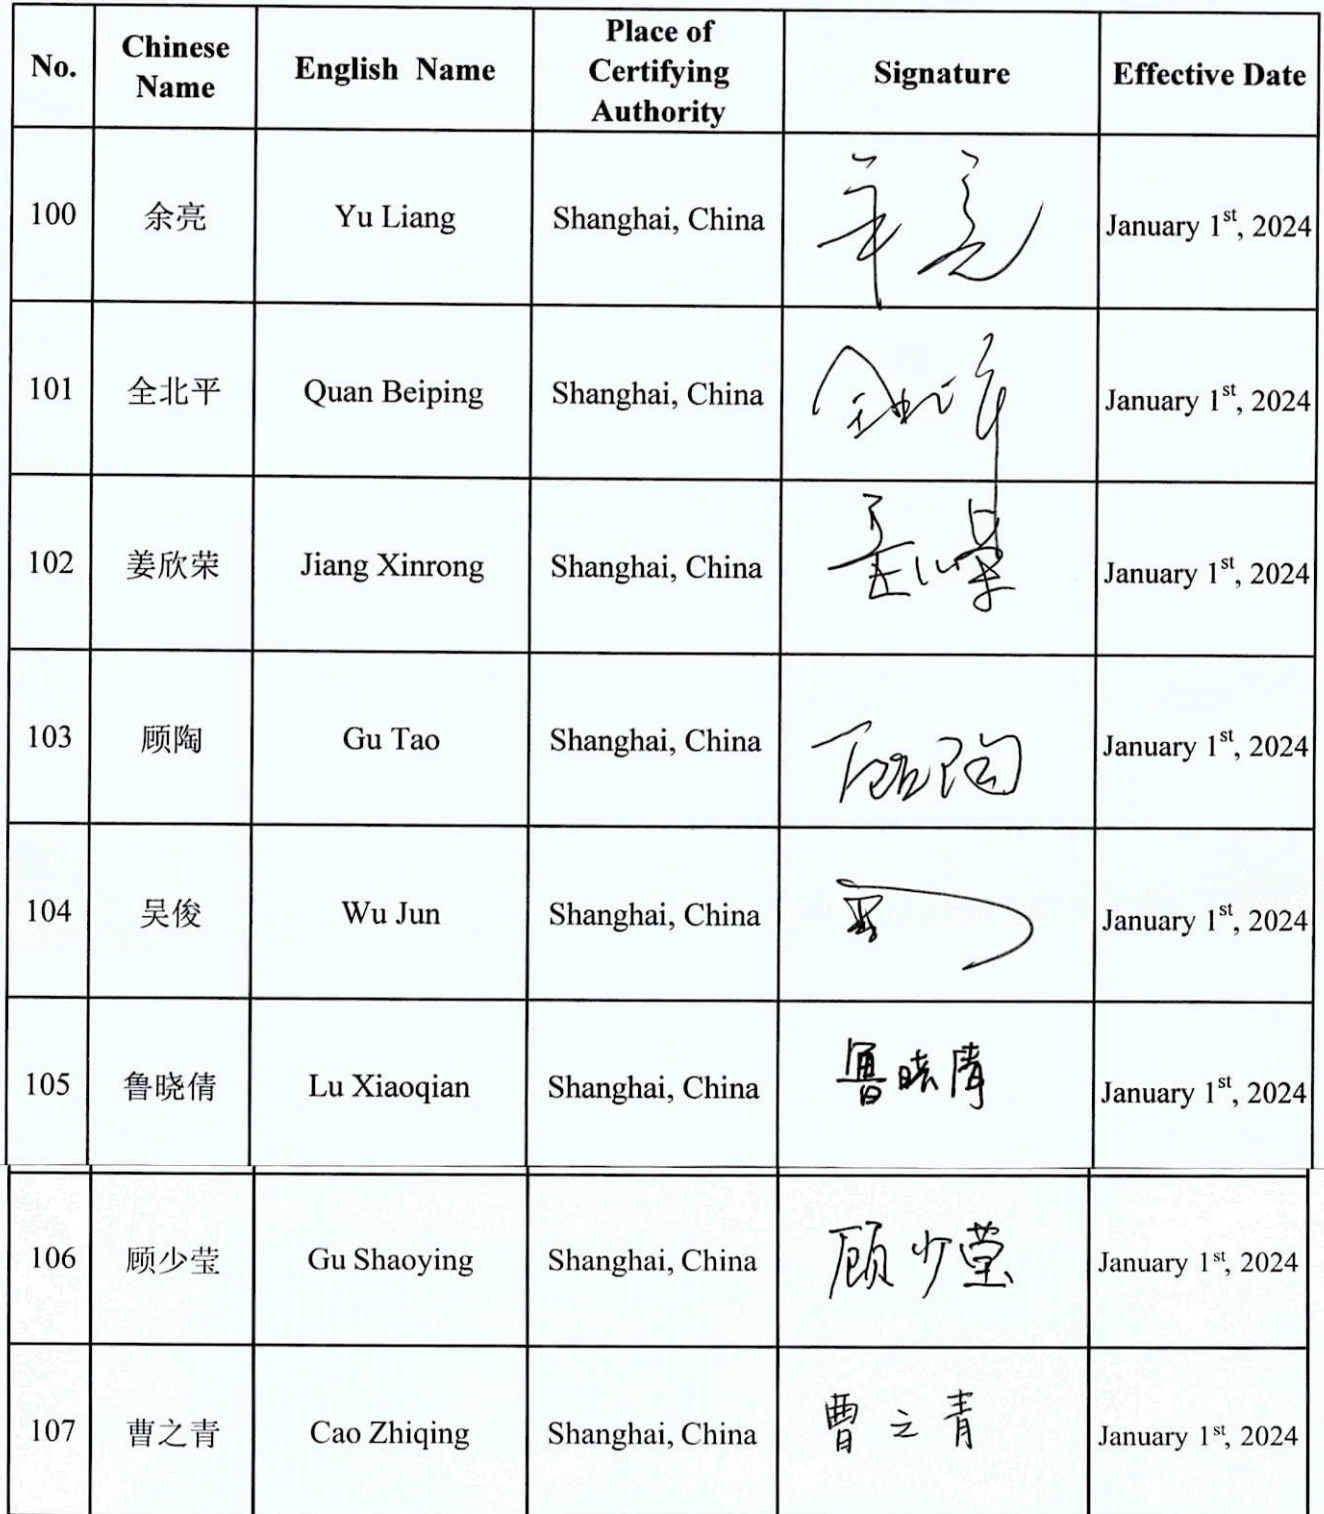 No.
Chinese
Name
English Name
Place of
Certifying
Authority
Signature
Effective Date
100
余亮
Yu Liang
Shanghai, China
January 1st, 2024
101
全北平
Quan Beiping
Shanghai, China
January 1st, 2024
102
姜欣荣
Jiang Xinrong
Shanghai, China
January 1st, 2024
103
顾陶
Gu Tao
Shanghai, China
顾陶
January 1st, 2024
104
吴俊
Wu Jun
Shanghai, China
January 1st, 2024
105
鲁晓倩
Lu Xiaoqian
Shanghai, China
鲁晓倩
January 1st, 2024
106
顾少莹
Gu Shaoying
Shanghai, China
顾少莹
January 1st, 2024
107
曹之青
Cao Zhiqing
Shanghai, China
曹之青
January 1st, 2024